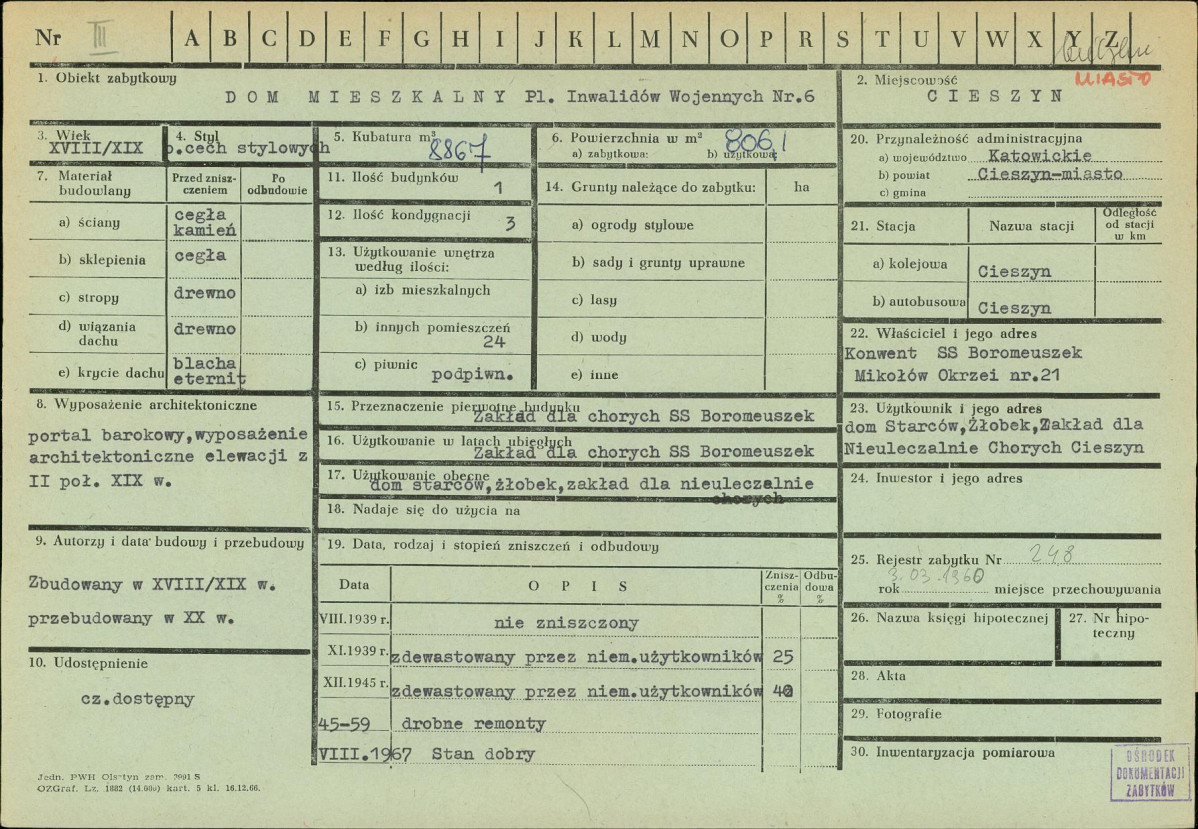 Nr III A B C D E F G H I J K L M N O P R S T U V W X Y Z
MIASTO
1. Obiekt zabytkowy
DOM MIESZKALNY Pl. Inwalidów Wojennych Nr.6
2. Miejscowość
CIESZYN
3. Wiek
XVIII/XIX
4. Styl
b.cech stylowych
5. Kubatura m³
8867
6. Powierzchnia w m²
8061
a) zabytkowa: b) użytkowa:
7. Materiał budowlany
Przed zniszczeniem
Po odbudowie
a) ściany cegła kamień
b) sklepienia cegła
c) stropy drewno
d) wiązania dachu drewno
e) krycie dachu blacha eternit
8. Wyposażenie architektoniczne
portal barokowy,wyposażenie
architektoniczne elewacji z
II poł. XIX w.
9. Autorzy i data budowy i przebudowy
Zbudowany w XVIII/XIX w.
przebudowany w XX w.
10. Udostępnienie
cz.dostępny
11. Ilość budynków
1
12. Ilość kondygnacji
3
13. Użytkowanie wnętrza
według ilości:
a) izb mieszkalnych
b) innych pomieszczeń
24
c) piwnic
podpiwn.
14. Grunty należące do zabytku: ha
a) ogrody stylowe
b) sady i grunty uprawne
c) lasy
d) wody
e) inne
15. Przeznaczenie pierwotne budynku
Zakład dla chorych SS Boromeuszek
16. Użytkowanie w latach ubiegłych
Zakład dla chorych SS Boromeuszek
17. Użytkowanie obecne
dom starców,żłobek,zakład dla nieuleczalnie
chorych
18. Nadaje się do użycia na
19. Data, rodzaj i stopień zniszczeń i odbudowy
Data OPIS Zniszczenia % Odbudowa %
VIII.1939 r. nie zniszczony
XI.1939 r. zdewastowany przez niem.użytkowników 25
XII.1945 r. zdewastowany przez niem.użytkowników 40
45-59 drobne remonty
VIII.1967 Stan dobry
20. Przynależność administracyjna
a) województwo Katowickie
b) powiat Cieszyn-miasto
c) gmina
21. Stacja Nazwa stacji Odległość od stacji w km
a) kolejowa Cieszyn
b) autobusowa Cieszyn
22. Właściciel i jego adres
Konwent SS Boromeuszek
Mikołów Okrzei nr.21
23. Użytkownik i jego adres
dom Starców,Żłobek,Zakład dla
Nieuleczalnie Chorych Cieszyn
24. Inwestor i jego adres
25. Rejestr zabytku Nr 248
3.03.1960
rok miejsce przechowywania
26. Nazwa księgi hipotecznej
27. Nr hipoteczny
28. Akta
29. Fotografie
30. Inwentaryzacja pomiarowa
OŚRODEK
DOKUMENTACJI
ZABYTKÓW
Jedn. PWH Olsztyn zam. 2991 S
OZGraf. Lz. 1882 (14.000) kart. 5 kl. 16.12.66.